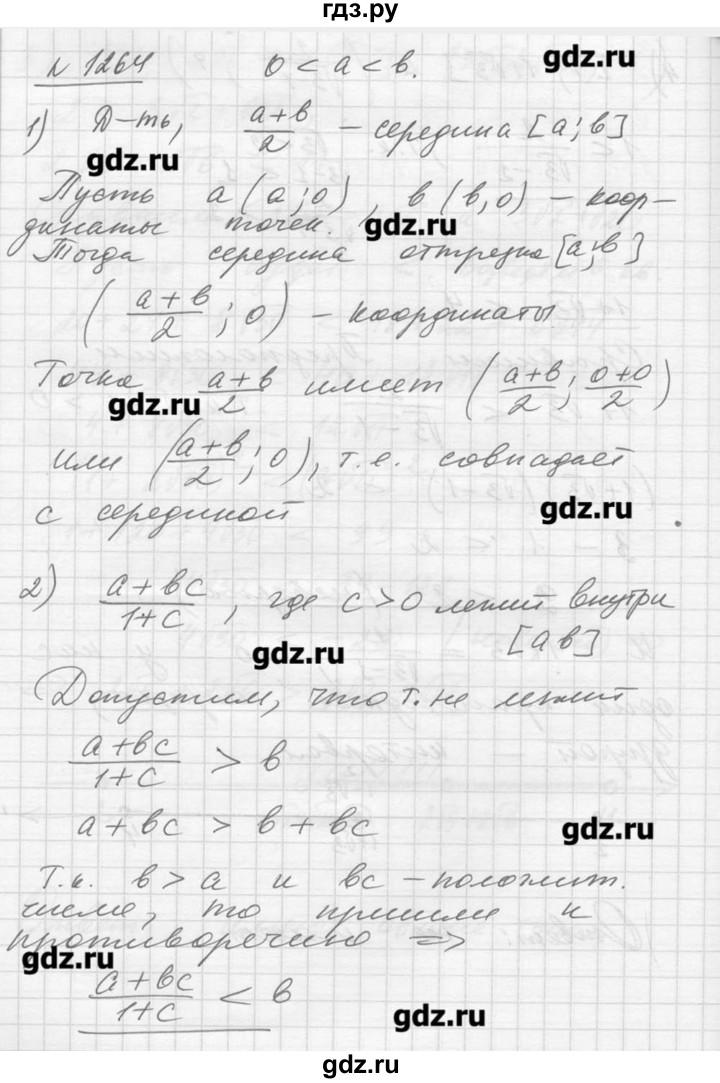 гдз.ру
№ 1264 0 < a < b.
gdz.ru
1) Д-ть, (a+b)/2 – середина [a; b]
gdz.ru
Пусть a (a; 0), b (b, 0) – коор-
динаты точек.
gdz.ru
Тогда середина отрезка [a; b]
((a+b)/2; 0) – координаты
Точка (a+b)/2 имеет ((a+b)/2; (0+0)/2)
gdz.ru
или ((a+b)/2; 0), т.е. совпадает
с серединой
gdz.ru
2) (a+bc)/(1+c), где c>0 лежит внутри
[ab]
gdz.ru
Допустим, что т. не лежит
(a+bc)/(1+c) > b
a+bc > b+bc
gdz.ru
Т.к. b > a и bc – положит.
числа, то пришли к
противоречию =>
gdz.ru
(a+bc)/(1+c) < b
gdz.ru
gdz.ru